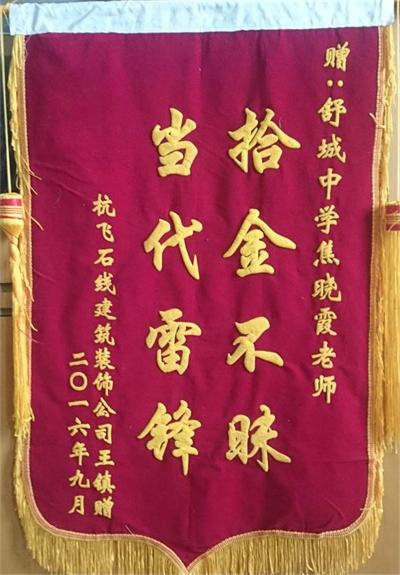 赠：舒城中学焦晓霞老师
拾金不昧
当代雷锋
杭飞石线建筑装饰公司王镇赠
二〇一六年九月